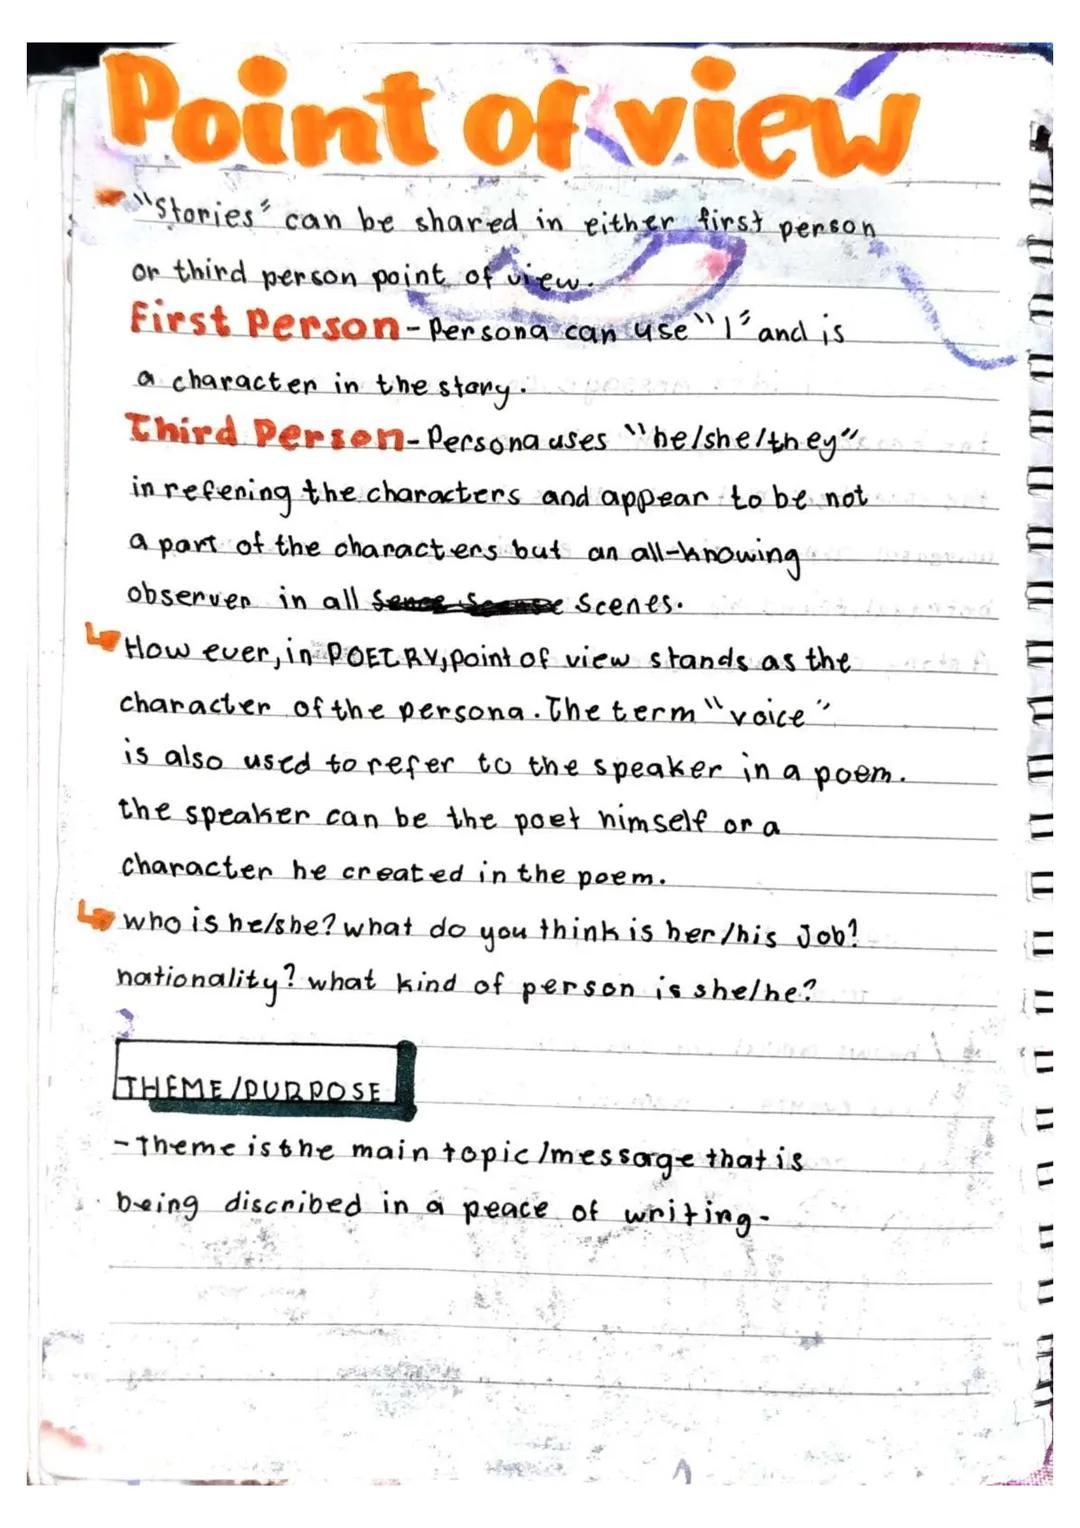 Point of view
"Stories" can be shared in either first person
or third person point of view.
First Person - Persona can use "I" and is
a character in the story.
Third Person - Persona uses "he/she/they"
in refering the characters and appear to be not
a part of the characters but an all-knowing
observer in all scenes.
How ever, in POETRY, point of view stands as the
character of the persona. The term "voice"
is also used to refer to the speaker in a poem.
the speaker can be the poet himself or a
character he created in the poem.
who is he/she? what do you think is her/his Job?
nationality? what kind of person is she/he?
THEME/PURPOSE
- Theme is the main topic/message that is
being discribed in a peace of writing-